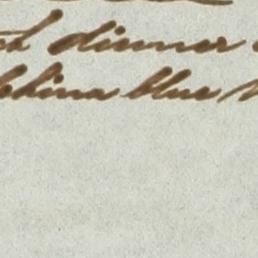 dinner
China blue